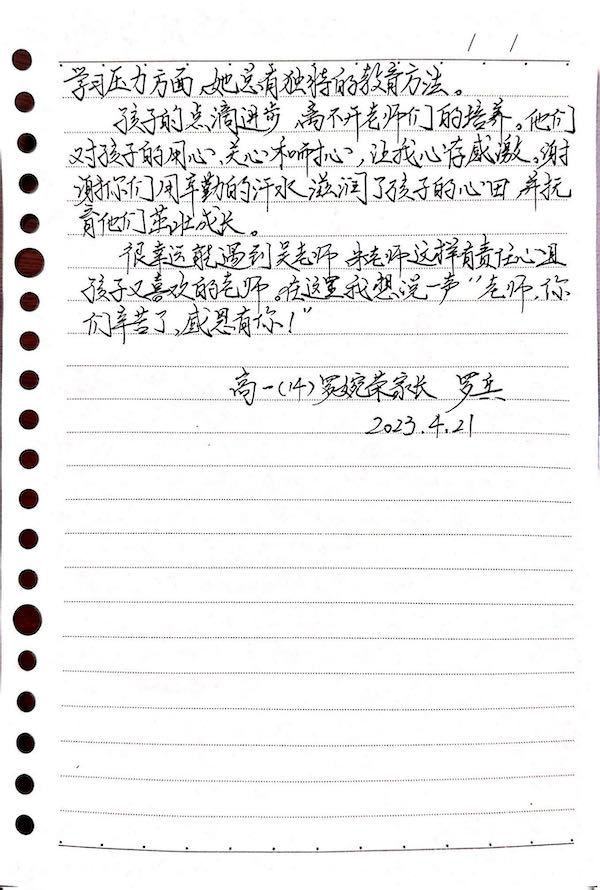 / /
学习压力方面,她总有独特的教育方法。
孩子的点滴进步,离不开老师们的培养。他们
对孩子的用心、关心和耐心,让我心存感激。谢
谢你们用辛勤的汗水,滋润了孩子的心田,并抚
育他们茁壮成长。
很幸运能遇到吴老师,朱老师这样有责任心且
孩子又喜欢的老师。在这里我想说一声"老师,你
们辛苦了,感恩有你!"
高一(14)罗婉荣家长 罗兵
2023.4.21